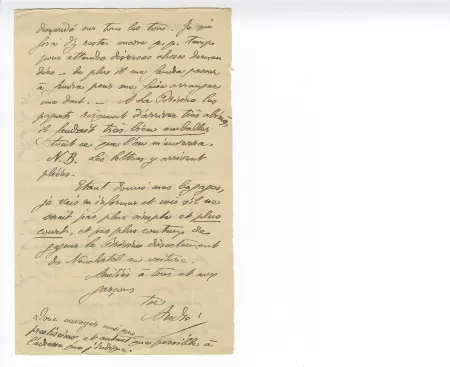 demandé sur tous les tons. Je me
ferai dz rester encore p.p. temps
pour attendre diverses choses deman
dées — de plus il me faudra passer
à pour me faire arranger
une dent. — A La Brévine les
paquets risquent d'arriver très abimés,
il faudrait très bien emballer
tout ce que l'on m'enverra.
N.B. Les lettres y arrivent
pliées.
Etant donné mes bagages,
je vais m'informer et voir s'il me
serait pas plus simple et plus
court, et pas plus couteux de
gagner la Brévine directement
de Neuchatel en voiture.
Amitiés à tous et aux
garçons
ton
André!
Donc envoyez moi
prestissimo, et autant que possible à
l'adresse que j'indique.